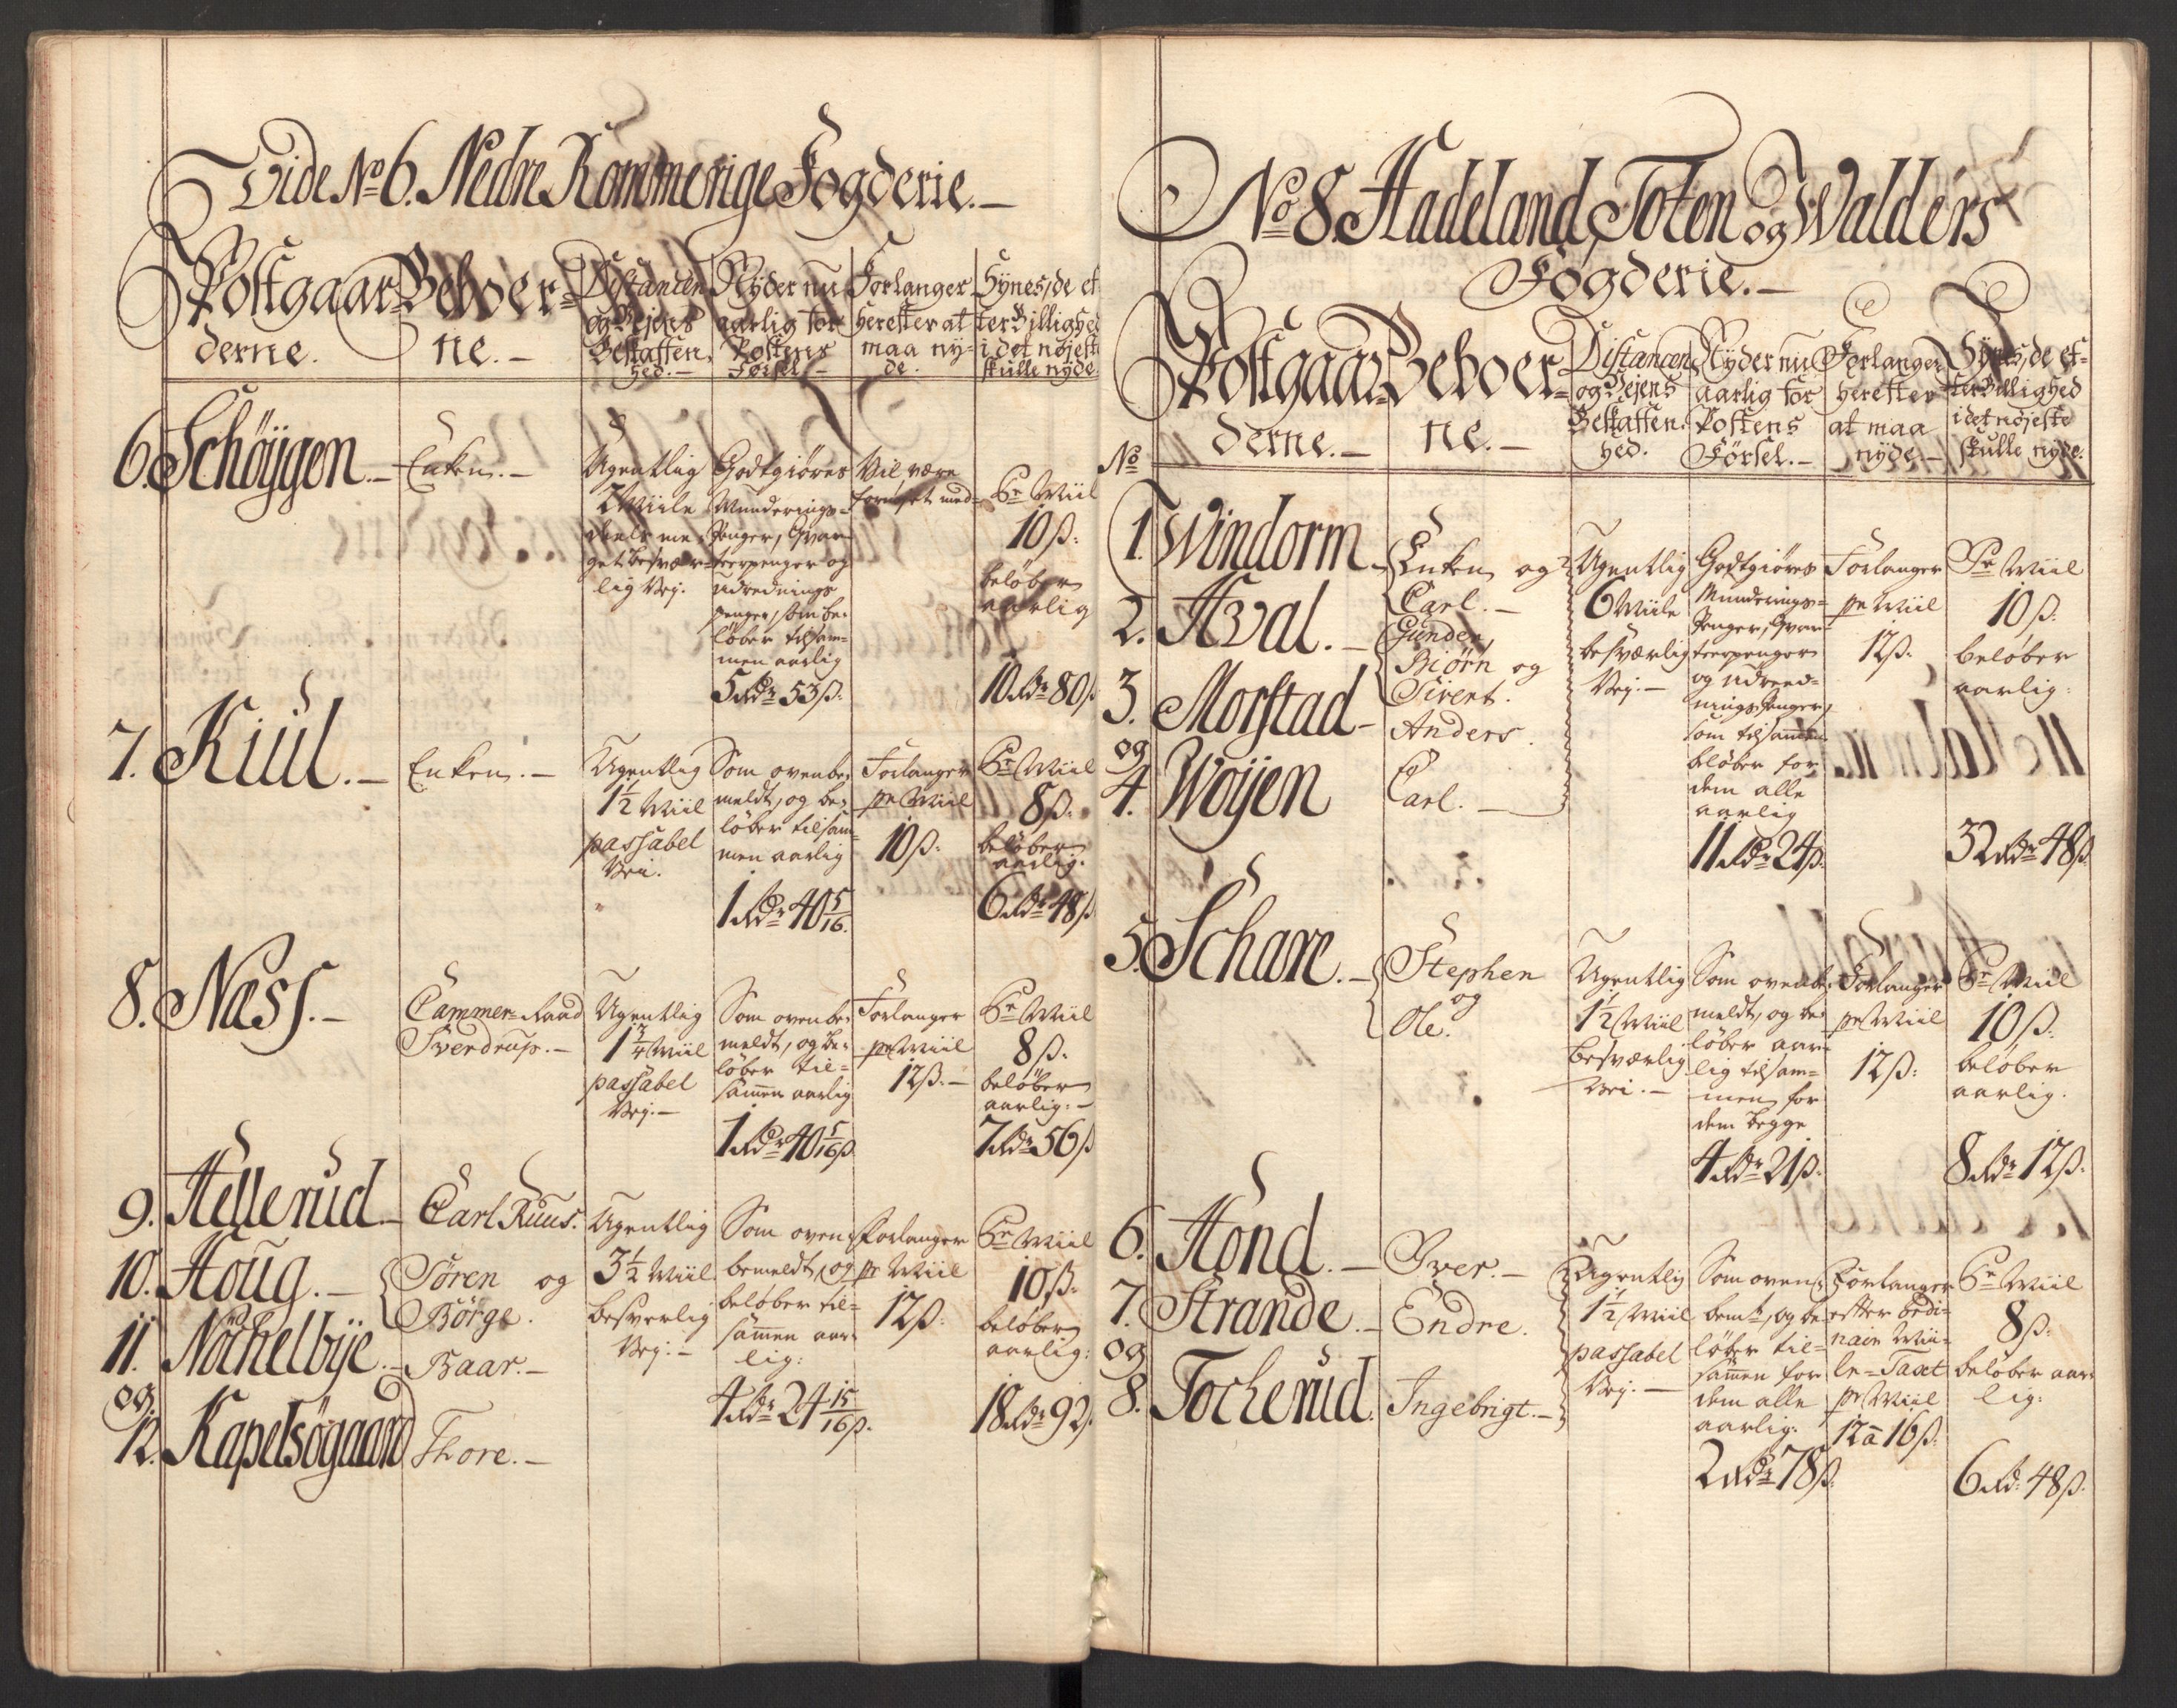 Vide No 6. Nedre Rommerige Fogderie.-
Postgaar=
derne.
Beboer=
ne.-
Distancen
og Vejens
Beskaffen,
hed.-
Nyder nu
aarlig for
Postens
Førsel.-
Forlanger
herefter at
maa ny=
de.
Synes, de ef
ter Billighed
i det nøjeste
skulle nyde.
6. Schøygen.-
Enken.-
Ugentlig
2 Miile
deels me=
get besvær=
lig Vej.
Godtgiøres
Munderings=
Penger, Qvar=
teerpenger og
Udrednings
penger, som be=
løber tilsam=
men aarlig
5 Rdr 53 ß.
Vil være
fornøjet med
Pr Miil
10 ß.
beløber
aarlig
10 Rdr 80 ß
7. Kiul.-
Enken.-
Ugentlig
1½ Miil
passabel
Vei.
Som ovenbe=
meldt, og be=
løber tilsam=
men aarlig
1 Rdr 40 5/16.
Forlanger
pr Miil
10 ß.
Pr Miil
8 ß.
beløber
aarlig.
6 Rdr 48 ß
8. Næss.-
Cammer-Raad
Sverdrup.-
Ugentlig
1¾ Miil
passabel
Vej.-
Som ovenbe=
meldt, og be=
løber til=
sammen aarlig
1 Rdr 40 5/16 ß
Forlanger
pr Miil
12 ß.-
Pr Miil
8 ß.
beløber
aarlig.-
7 Rdr 56 ß
9. Hellerud.-
10. Houg.-
11. Nøchelbye.-
og
12. Kapelsøgaard
Carl Ruus.
Søren og
Børge.
Baar.-
Thore.-
Ugentlig
3½ Miil
besverlig
Vej.-
Som oven=
bemeldt, og
beløber til=
sammen aar=
lig:
4 Rdr 24 15/16 ß.
Forlanger
pr Miil
12 ß.
Pr Miil
10 ß.
beløber
aarlig:
18 Rdr 92 ß
No 8. Hadeland, Toten og Walders
Fogderie.-
No
Postgaar=
derne.-
Beboer=
ne.-
Distancen
og Vejens
Beskaffen.
hed.
Nyder nu
aarlig for
Postens
Førsel.-
Forlanger
herefter
at maa
nyde.-
Synes, de ef=
ter Billighed
i det nøjeste
skulle nyde.
1. Windorm.-
2. Hval.-
3. Morstad-
og
4. Woyen
Enken og
Carl.-
Gunder,
Biørn og
Sivert.
Anders.
Carl.-
Ugentlig
6 Miile
besværlig
Vej.-
Godtgiøres
Munderings=
Penger, Qvar=
teerpenger
og Udred=
nings Penger,
som tilsammen
beløber for
dem alle
aarlig
11 Rdr 24 ß.
Forlanger
pr Miil
12 ß.
Pr Miil
10 ß.
beløber
aarlig.
32 Rdr 48 ß
5. Schare.-
Stephen
og
Ole.
Ugentlig
1½ Miil
besværlig
Vei.-
Som ovenbe=
meldt, og be=
løber aar=
lig tilsam=
men for
dem begge
4 Rdr 21 ß.
Forlanger
pr Miil
12 ß.
Pr Miil
10 ß.
beløber
aarlig.
8 Rdr 12 ß.
6. Hond.-
7. Strande.-
og
8. Tocherud.
Iver.-
Endre.
Ingebrigt.-
Ugentlig
1½ Miil
passabel
Vej.-
Som oven=
bemt, og be=
løber til=
sammen for
dem alle
aarlig.
2 Rdr 78 ß.
Forlanger
efter
Mii=
le-Taxt
pr Miil
12 a 16 ß.
Pr Miil
8 ß.
beløber aar=
lig:
6 Rd. 48 ß.